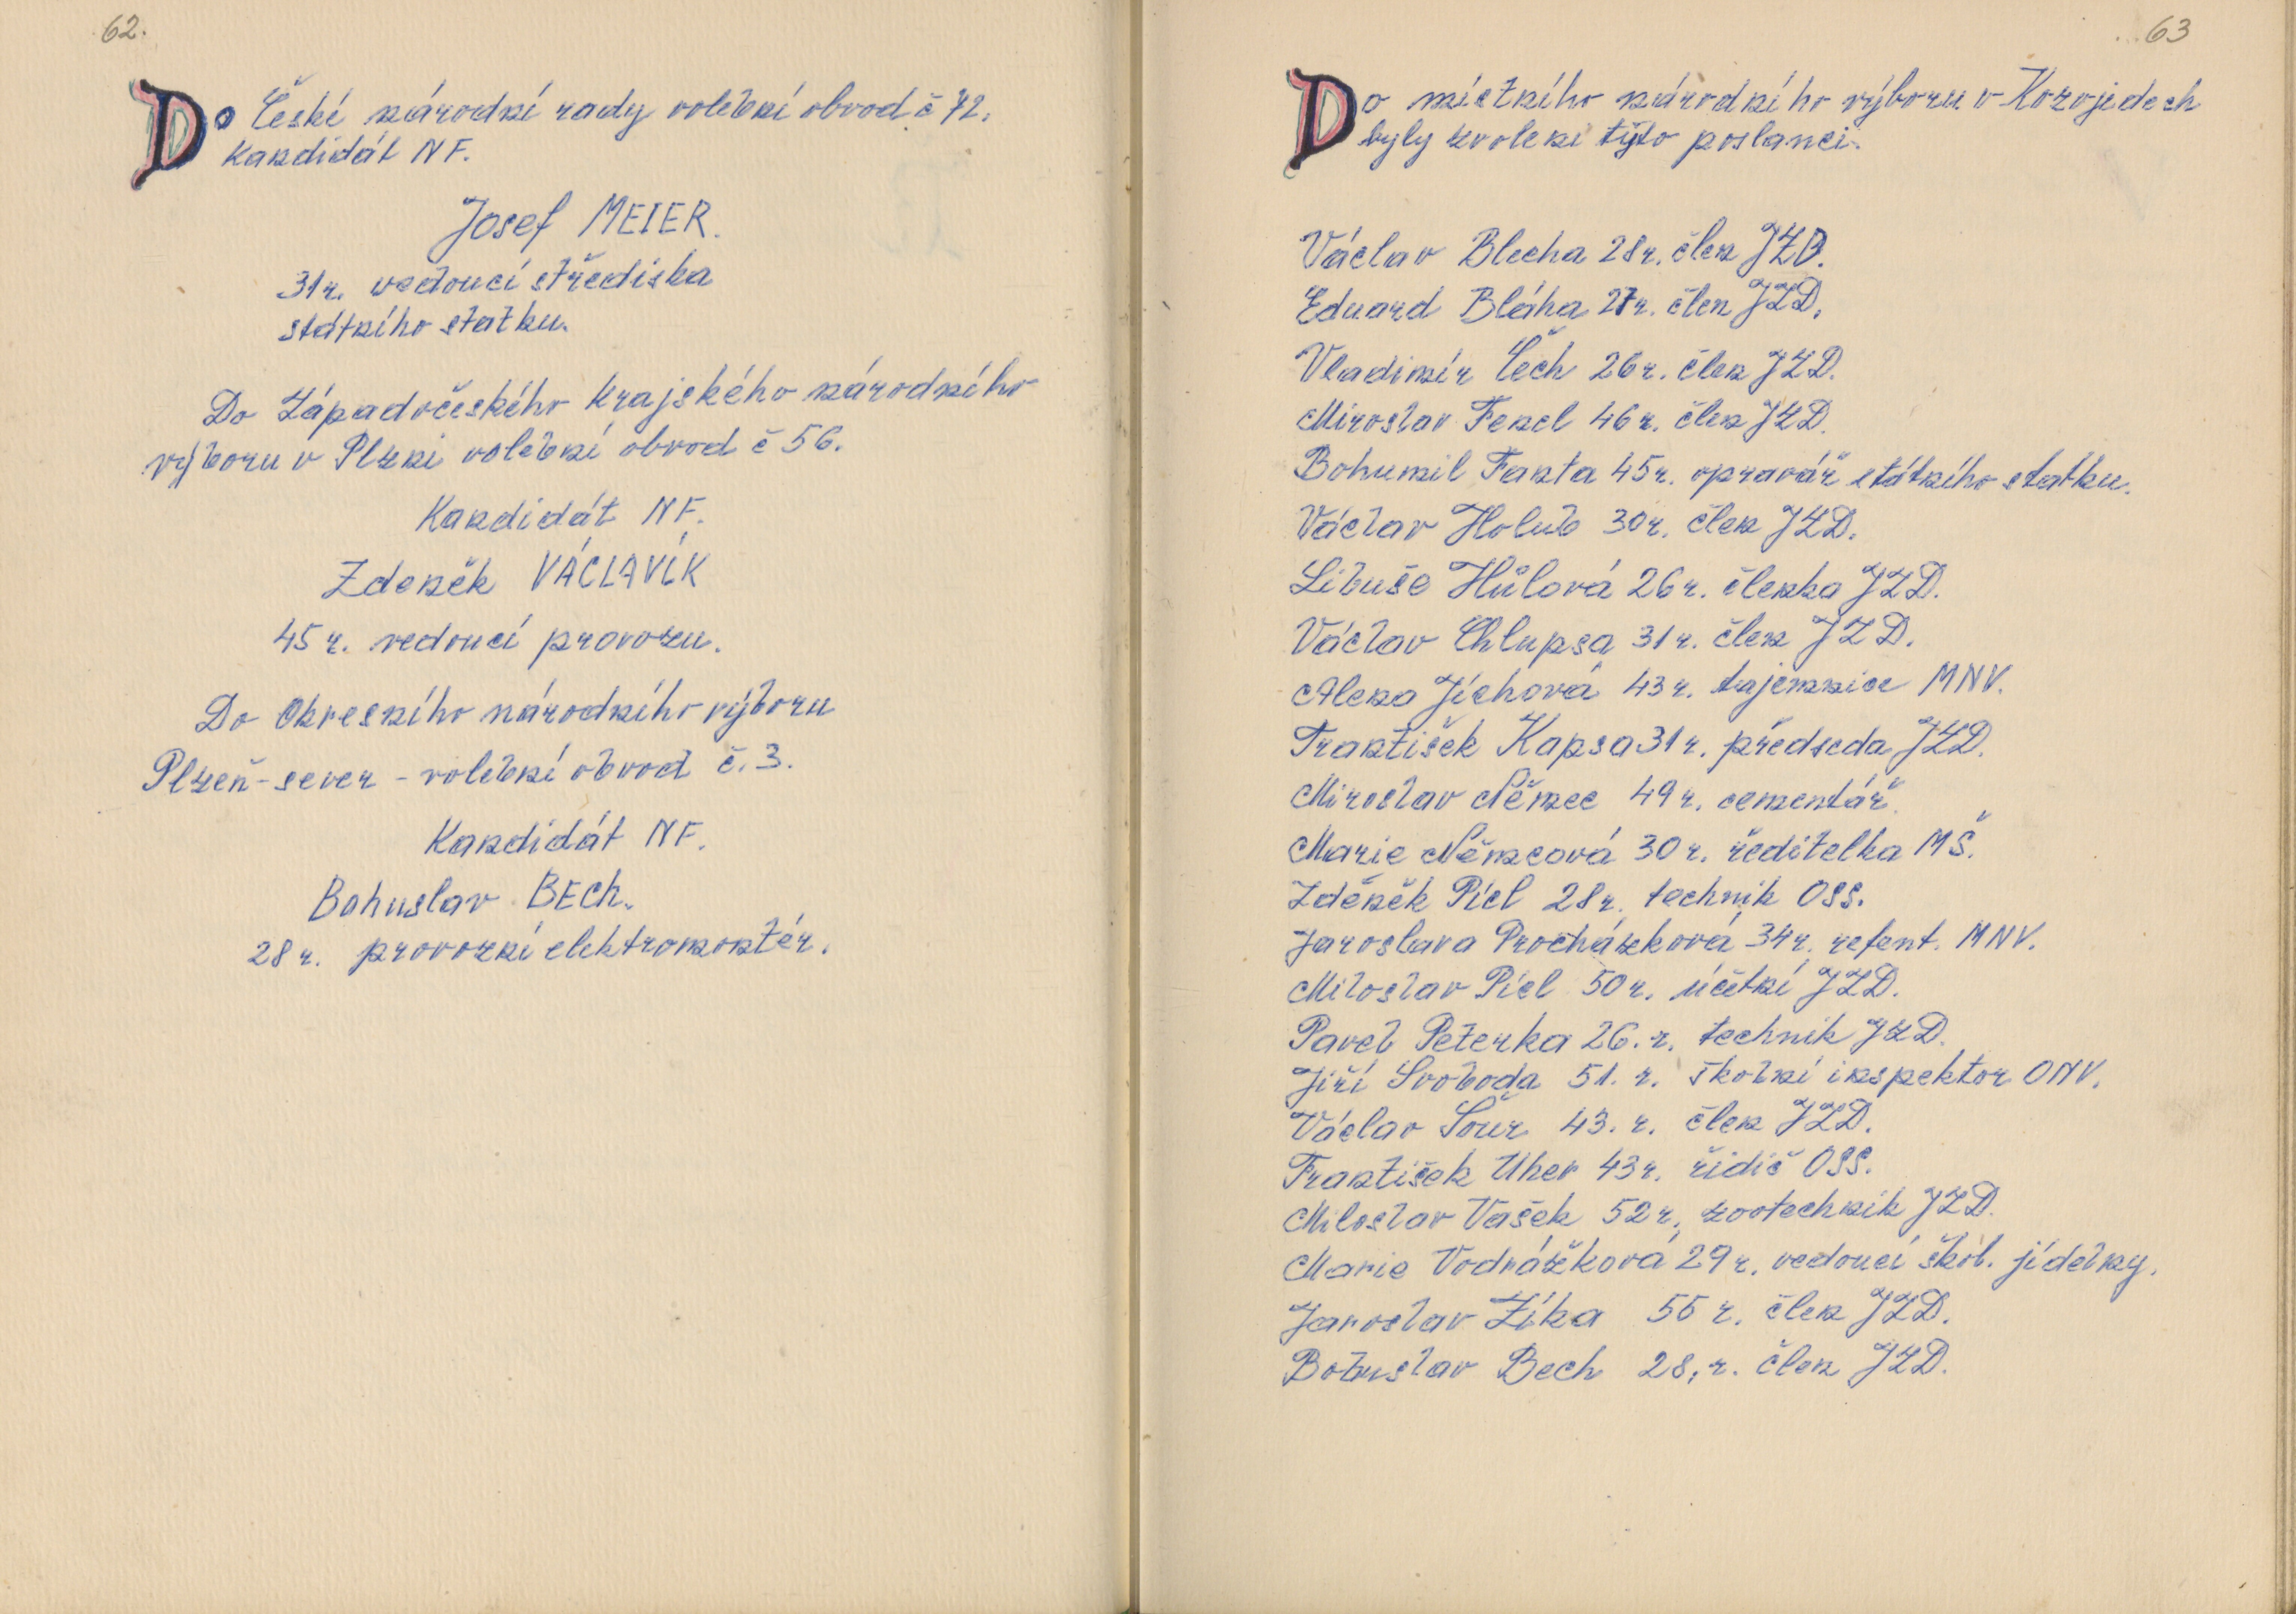 62.
Do České národní rady volební obvod č 72.
Kandidát NF.
Josef MEIER.
31r. vedoucí střediska
státního statku.
Do Západočeského krajského národního
výboru v Plzni volební obvod č 56.
Kandidát NF.
Zdeněk VÁCLAVÍK
45 r. vedoucí provozu.
Do Okresního národního výboru
Plzeň-sever - volební obvod č. 3.
Kandidát NF.
Bohuslav BECh.
28 r. provozní elektromontér.
63
Do místního národního výboru v Kozojedech
byly zvoleni tyto poslanci.
Václav Blecha 28r. člen JZD.
Eduard Bláha 27r. člen JZD.
Vladimír Čech 26r. člen JZD.
Miroslav Fencl 46r. člen JZD.
Bohumil Fanta 45r. opravář státního statku.
Václav Holub 30r. člen JZD.
Libuše Hůlová 26r. členka JZD.
Václav Chlupsa 31r. člen JZD.
Alena Jíchová 43r. tajemnice MNV.
František Kapsa 31r. předseda JZD.
Miroslav Němec 49r. cementář.
Marie Němcová 30r. ředitelka MŠ.
Zděněk Picl 28r. technik OSS.
Jaroslava Procházková 34r. refent. MNV.
Miloslav Picl 50r. účetní JZD.
Pavel Peterka 26. r. technik JZD.
Jiří Svoboda 51. r. školní inspektor ONV.
Václav Šour 43. r. člen JZD.
František Uher 43r. řidič OSS.
Miloslav Vašek 52r. zootechnik JZD.
Marie Vodrážková 29r. vedoucí škol. jídelny.
Jaroslav Zíka 55 r. člen JZD.
Bohuslav Bech 28. r. člen JZD.